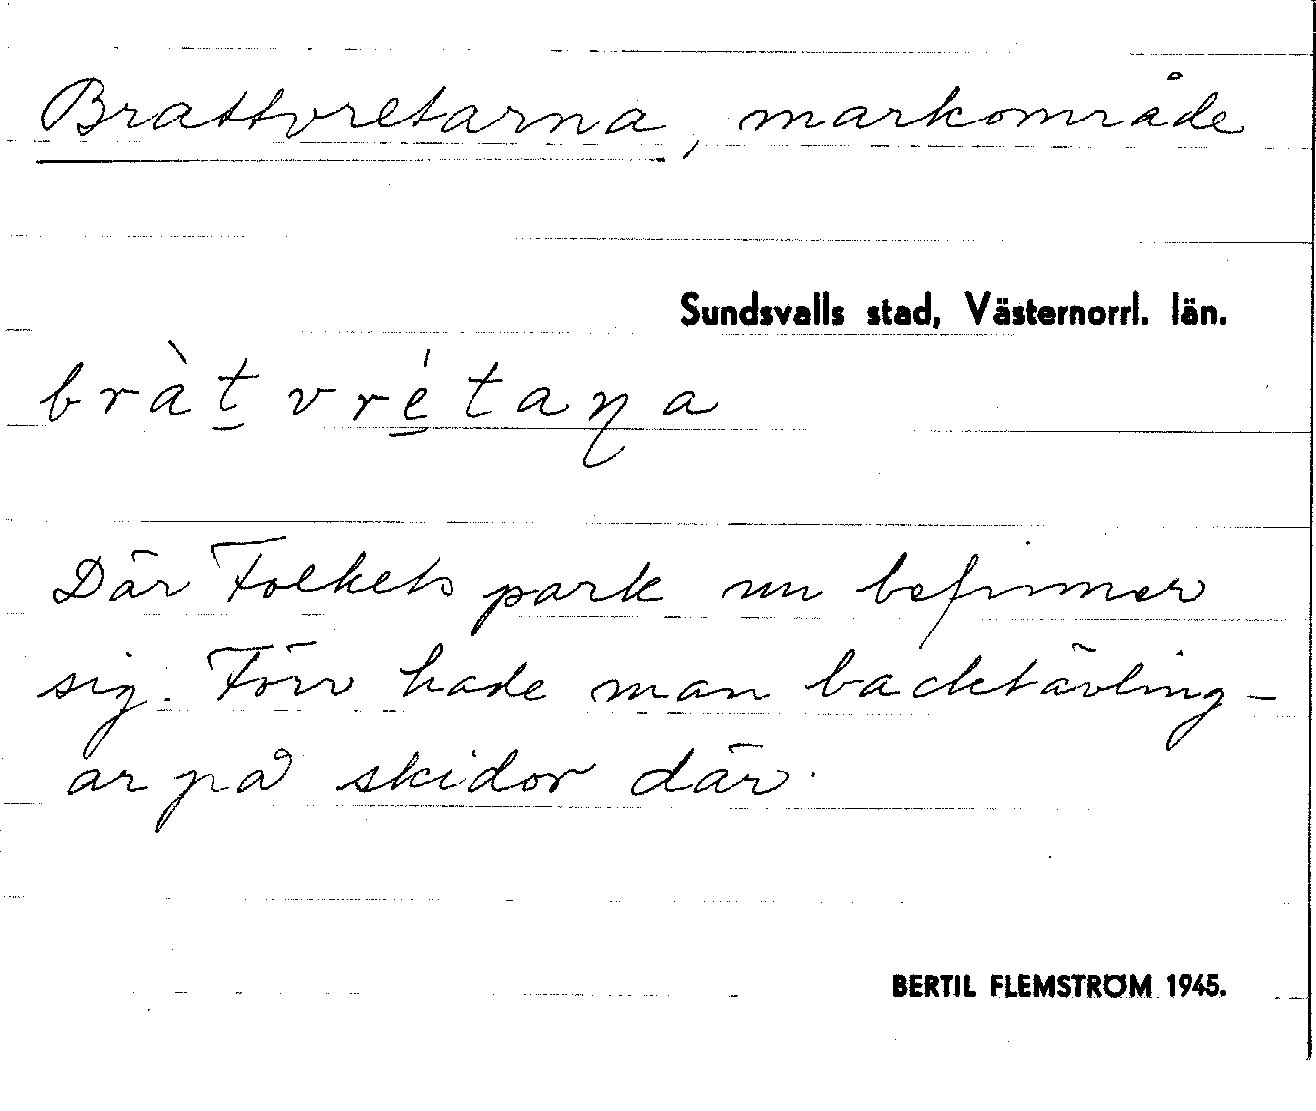 Brattvretarna, markområde
Sundsvalls stad, Västernorrl. län.
bràt̲vré̲taɳa
Där Folkets park nu befinner
sig. Förr hade man backtävling-
ar på skidor där.
BERTIL FLEMSTRÖM 1945.